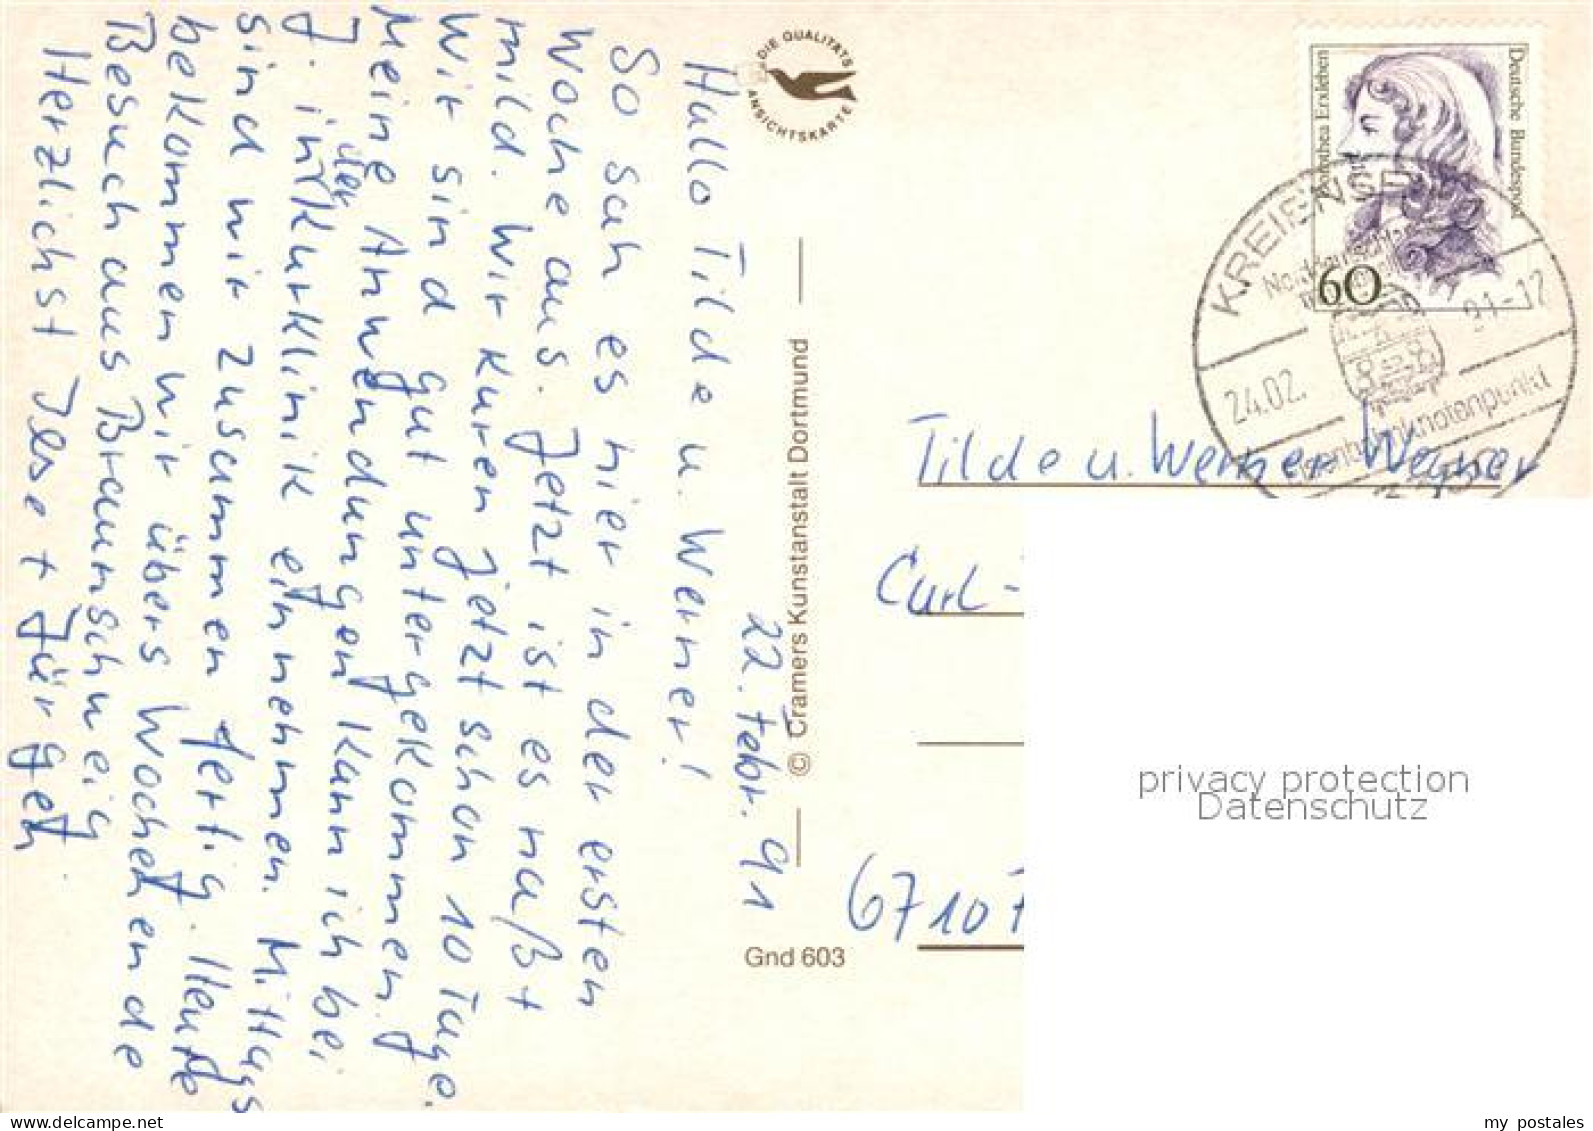 22. Febr. 91
Hallo Tilde u. Werner!
So sah es hier in der ersten
Woche aus. Jetzt ist es naßt
mild. Wir kuren jetzt schon 10 Tage.
Wir sind gut untergekommen.
Meine Anwendungen kann ich bei
J. in der Kurklinik einnehmen. Mittags
sind wir zusammen fertig. Heute
bekommen wir übers Wochenende
Besuch aus Braunschweig
Herzlichst Ilse + Jürgen
DIE QUALITÄTS
ANSICHTSKARTE
© Cramers Kunstanstalt Dortmund
Gnd 603
Dorothea Erxleben
Deutsche Bundespost
60
KREIENSEN
24.02. 91-12
Eisenbahnknotenpunkt
Tilde u. Werner
Carl-
6710
privacy protection
Datenschutz
my_postales